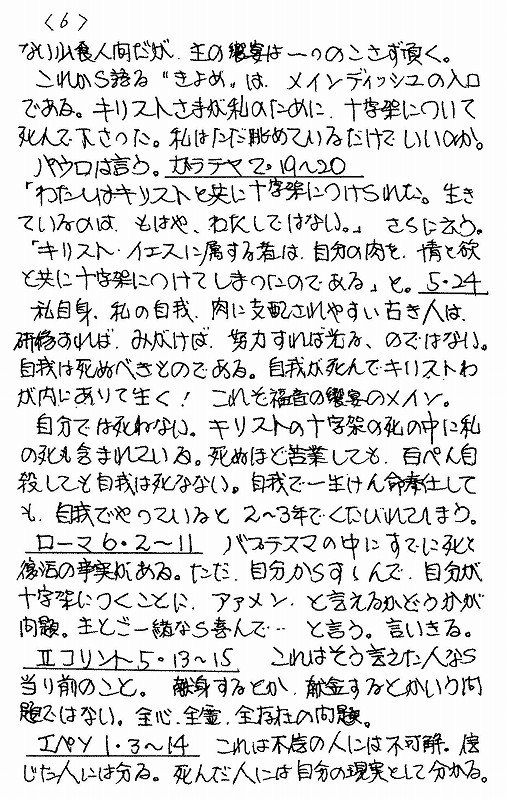 〈6〉
ない小食人間だが、主の饗宴は一つのこさず頂く。
これから語る“きよめ”は、メインディッシュの入口
である。キリストさまが私のために、十字架について
死んで下さった。私はただ眺めているだけでいいのか。
パウロは言う。ガラテヤ2・19~20
「わたしはキリストと共に十字架につけられた。生き
ているのは、もはや、わたしではない。」 さらに云う。
「キリスト・イエスに属する者は、自分の肉を、情と欲
と共に十字架につけてしまったのである」と。5・24
私自身、私の自我、肉に支配されやすい古き人は、
研修すれば、みがけば、努力すれば光る、のではない。
自我は死ぬべきものである。自我が死んでキリストわ
が内にありて生く! これぞ福音の饗宴のメイン。
自分では死ねない。キリストの十字架の死の中に私
の死も含まれている。死ぬほど苦業しても、百ぺん自
殺しても自我は死なない。自我で一生けん命奉仕して
も、自我でやっていると 2~3年でくたびれてしまう。
ローマ6・2~11 バプテスマの中にすでに死と
復活の事実がある。ただ、自分からすゝんで、自分が
十字架につくことに、アァメン、と言えるかどうかが
問題。主とご一緒なら喜んで‥ と言う。言いきる。
Ⅱコリント5・13~15 これはそう言えた人なら
当り前のこと。 献身するとか、献金するとかいう問
題ではない。全心、全霊、全存在の問題。
エペソ1・3~14 これは不信の人には不可解。信
じた人には分る。死んだ人には自分の現実として分かる。